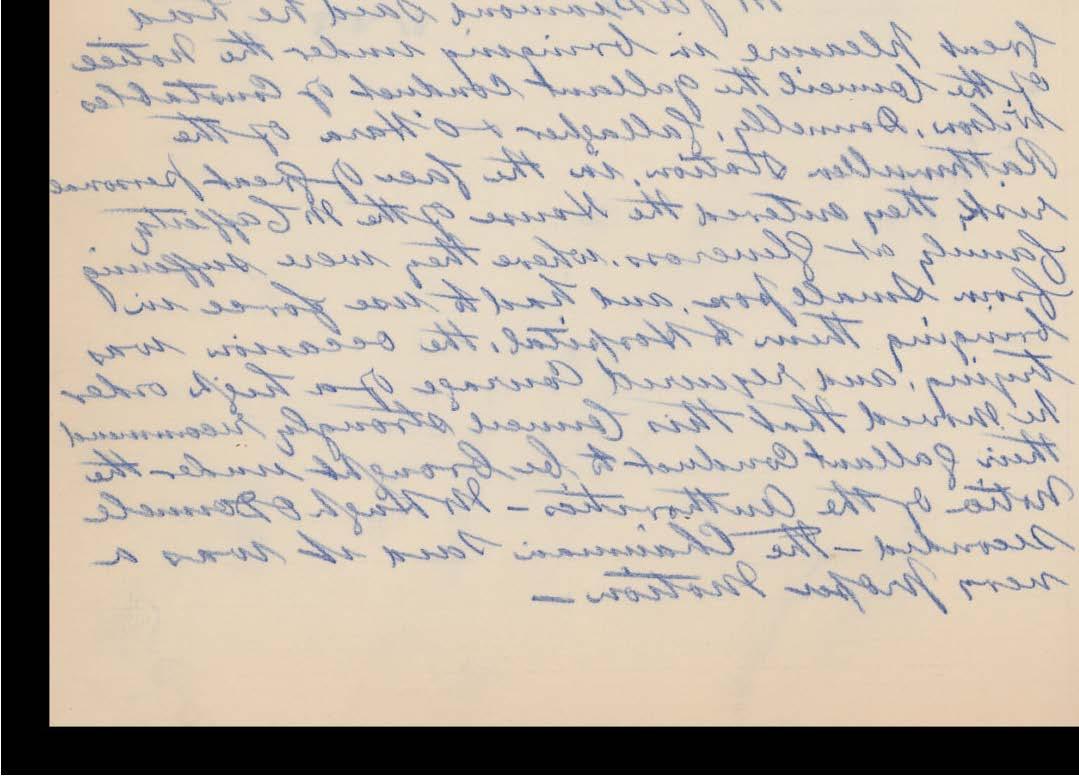 said he had
great pleasure in bringing under the notice
of the Council the gallant conduct of Constables
Wilson, Donnelly, Gallagher & O'Hara of the
Rathmullen Station, in the face of great persona
risk, they entered the House of the McCafferty
family at Glenross, where they were suffering
from Small pox, and had to use force in
bringing them to Hospital, the occasion was
trying, and required Courage of a high order
he moved that this Council strongly recommend
their gallant Conduct to be brought under the
Notice of the Authorities - Mr Hugh O'Donnell
seconded - the Chairman said it was a
very proper Motion -